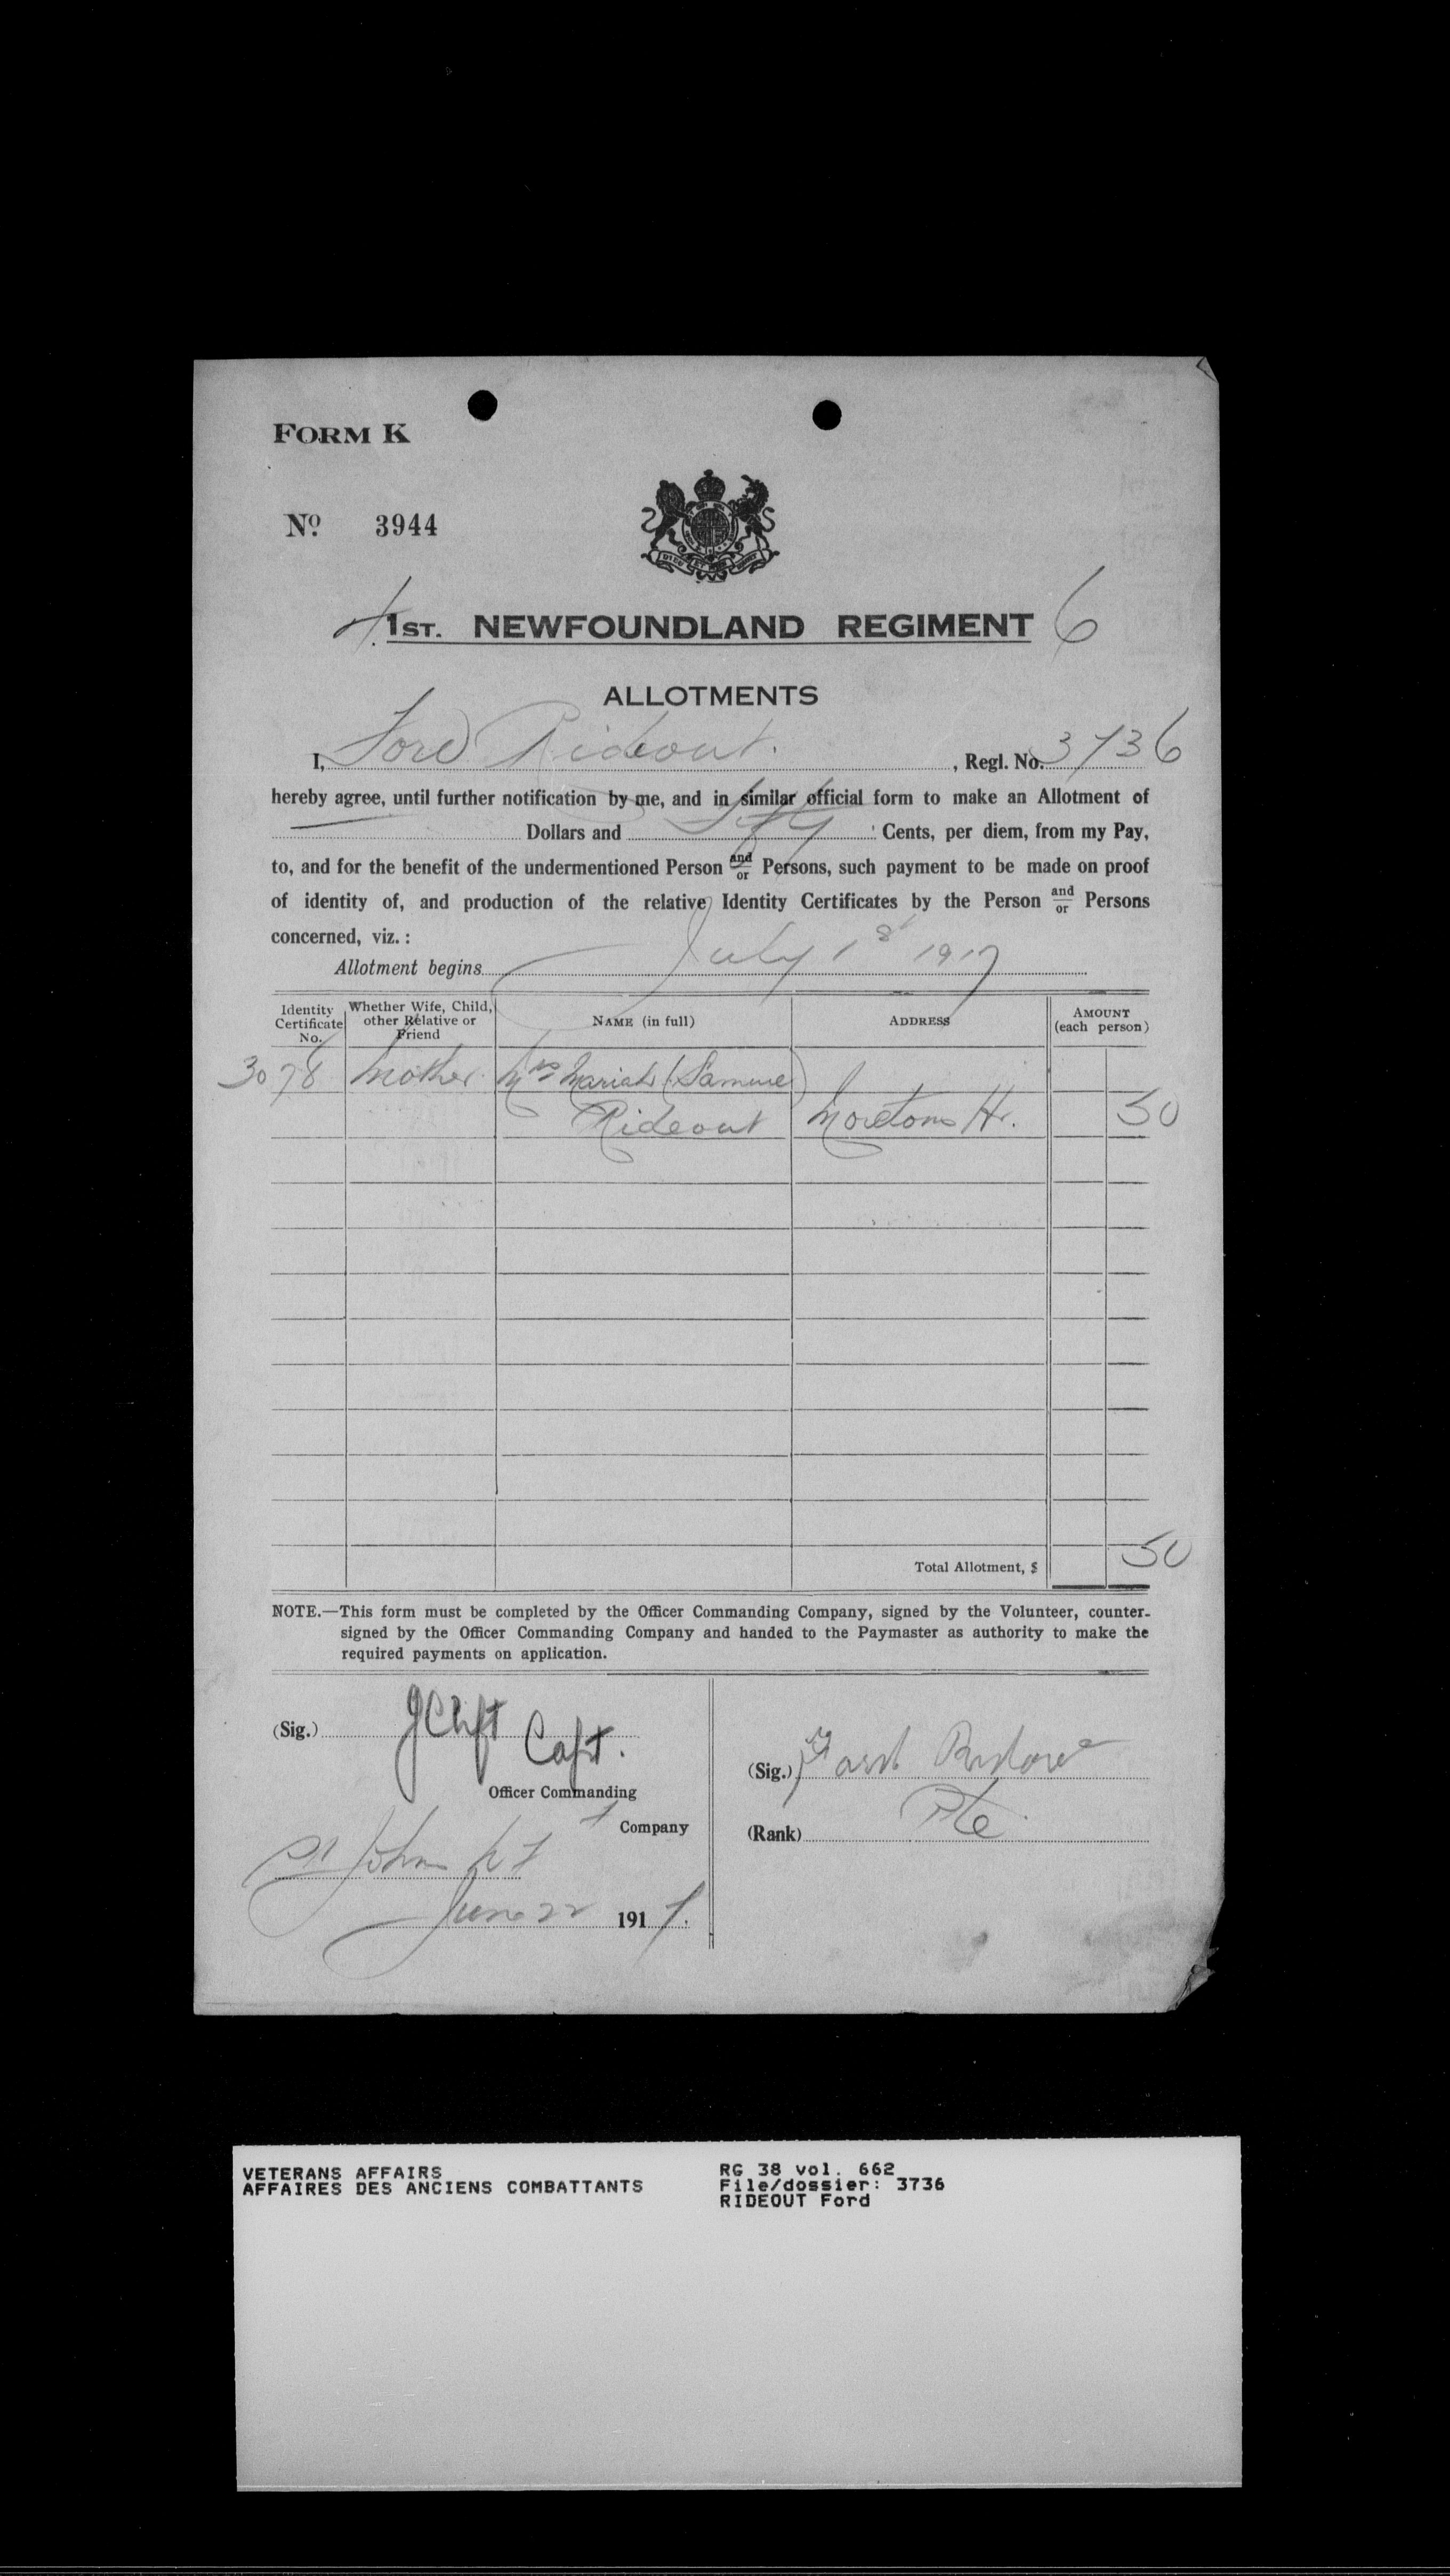 FORM K
No. 3944
1ST. NEWFOUNDLAND REGIMENT 6
ALLOTMENTS
I, Ford Rideout. , Regl. No. 3736
hereby agree, until further notification by me, and in similar official form to make an Allotment of
Dollars and fifty Cents, per diem, from my Pay,
to, and for the benefit of the undermentioned Person and/or Persons, such payment to be made on proof
of identity of, and production of the relative Identity Certificates by the Person and/or Persons
concerned, viz. :
Allotment begins July 1st 1917
Identity Certificate No. Whether Wife, Child, other Relative or Friend NAME (in full) ADDRESS AMOUNT (each person)
3078 Mother Mrs Mariah (Samuel)
Rideout Moretons Hr. 50
Total Allotment, $ 50
NOTE.—This form must be completed by the Officer Commanding Company, signed by the Volunteer, counter-
signed by the Officer Commanding Company and handed to the Paymaster as authority to make the
required payments on application.
(Sig.) J Clift Capt.
Officer Commanding
Company
St John's NF
June 22 1917.
(Sig.) Ford Rideout
(Rank) Pte
VETERANS AFFAIRS
AFFAIRES DES ANCIENS COMBATTANTS
RG 38 vol. 662
File/dossier: 3736
RIDEOUT Ford